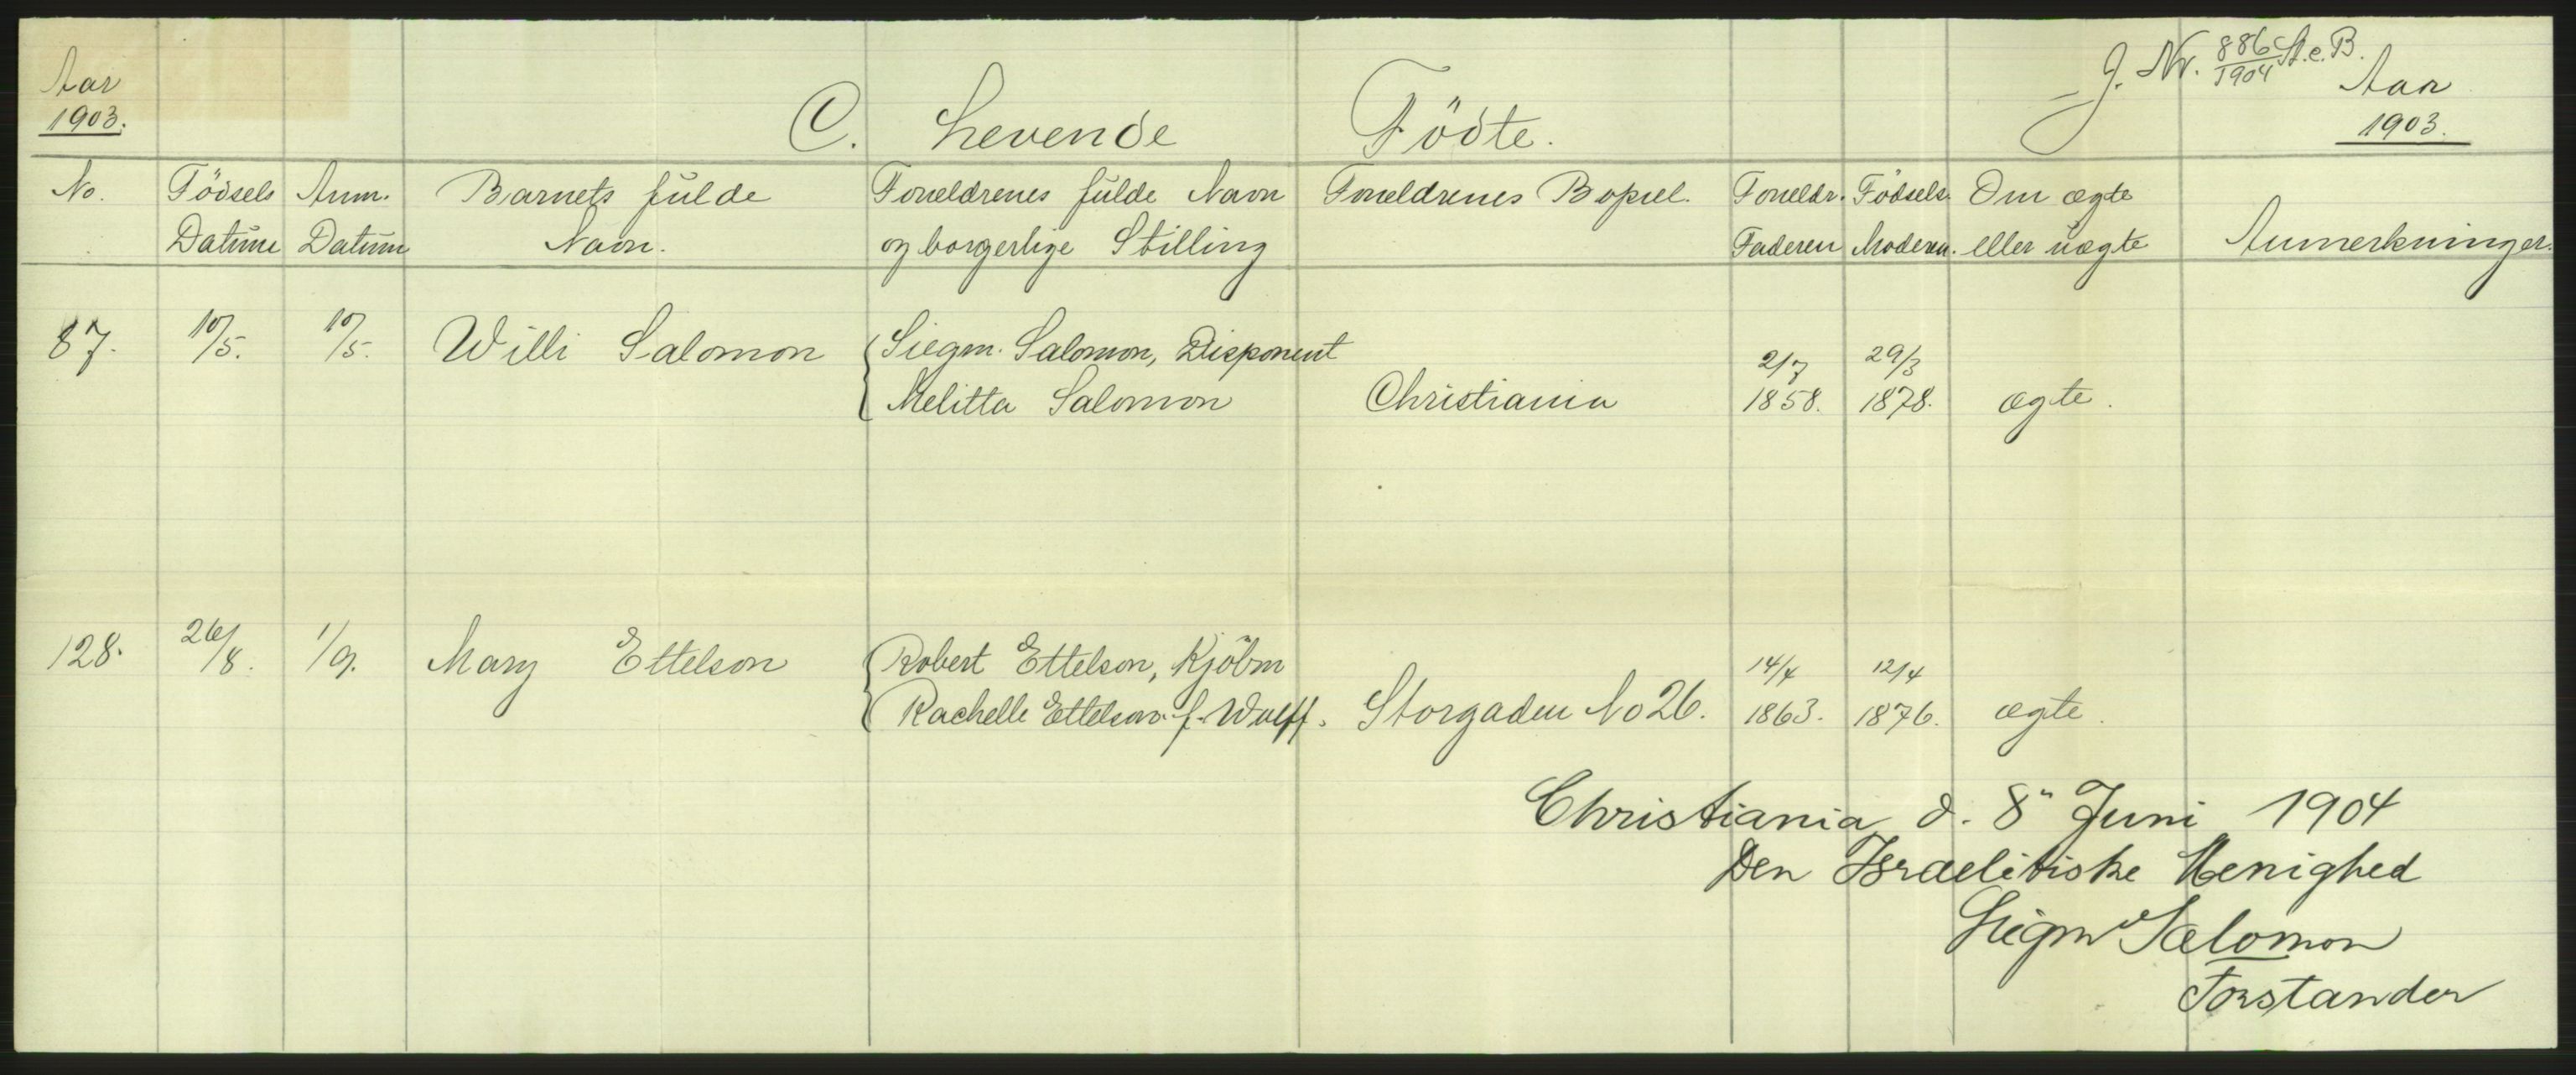 J. Nr. 886/1904 St. e. B.
Aar
1903.
Aar
1903.
C. Levende Födte.
No.
Födsels Datum
Anm. Datum
Barnets fulde Navn.
Foreldrenes fulde Navn og borgerlige Stilling
Foreldrenes Bopæl.
Foreldr. Födsels.
Faderen Moderen.
Om ægte eller uægte
Anmerkninger.
87. 10/5. 10/5. Willi Salomon
Siegm. Salomon, Disponent
Melitta Salomon
Christiania
2/7 1858.
29/3 1878.
ægte.
128. 26/8. 1/9. Mary Ettelson
Robert Ettelson, Kjöbm
Rachelle Ettelson f. Wulff.
Storgaden No 26.
14/4 1863.
12/4 1876.
ægte.
Christiania d. 8" Juni 1904
Den Israelitiske Menighed
Siegm Salomon
Forstander